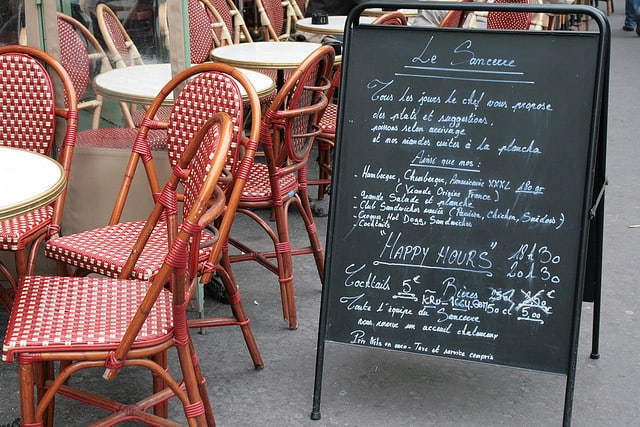 Le Sancerre
Tous les jours le chef vous propose
des plats et suggestions,
poissons selon arrivage
et nos viandes cuites à la plancha
Ainsi que nos :
Hamburger, Cheeseburger, Americaine XXXL
(Viande Origine France)
Grande Salade et planche
Club Sandwiches maison (Parisien, Chicken, Suédois)
Croque, Hot Dogs, Sandwiches
Cocktails
"HAPPY HOURS" 18h30
20h30
Cocktails 5€ Bières
50cl 5,00
Toute l'équipe du Sancerre
vous assure un accueil chaleureux
Prix Nets en euro - Taxe et service compris